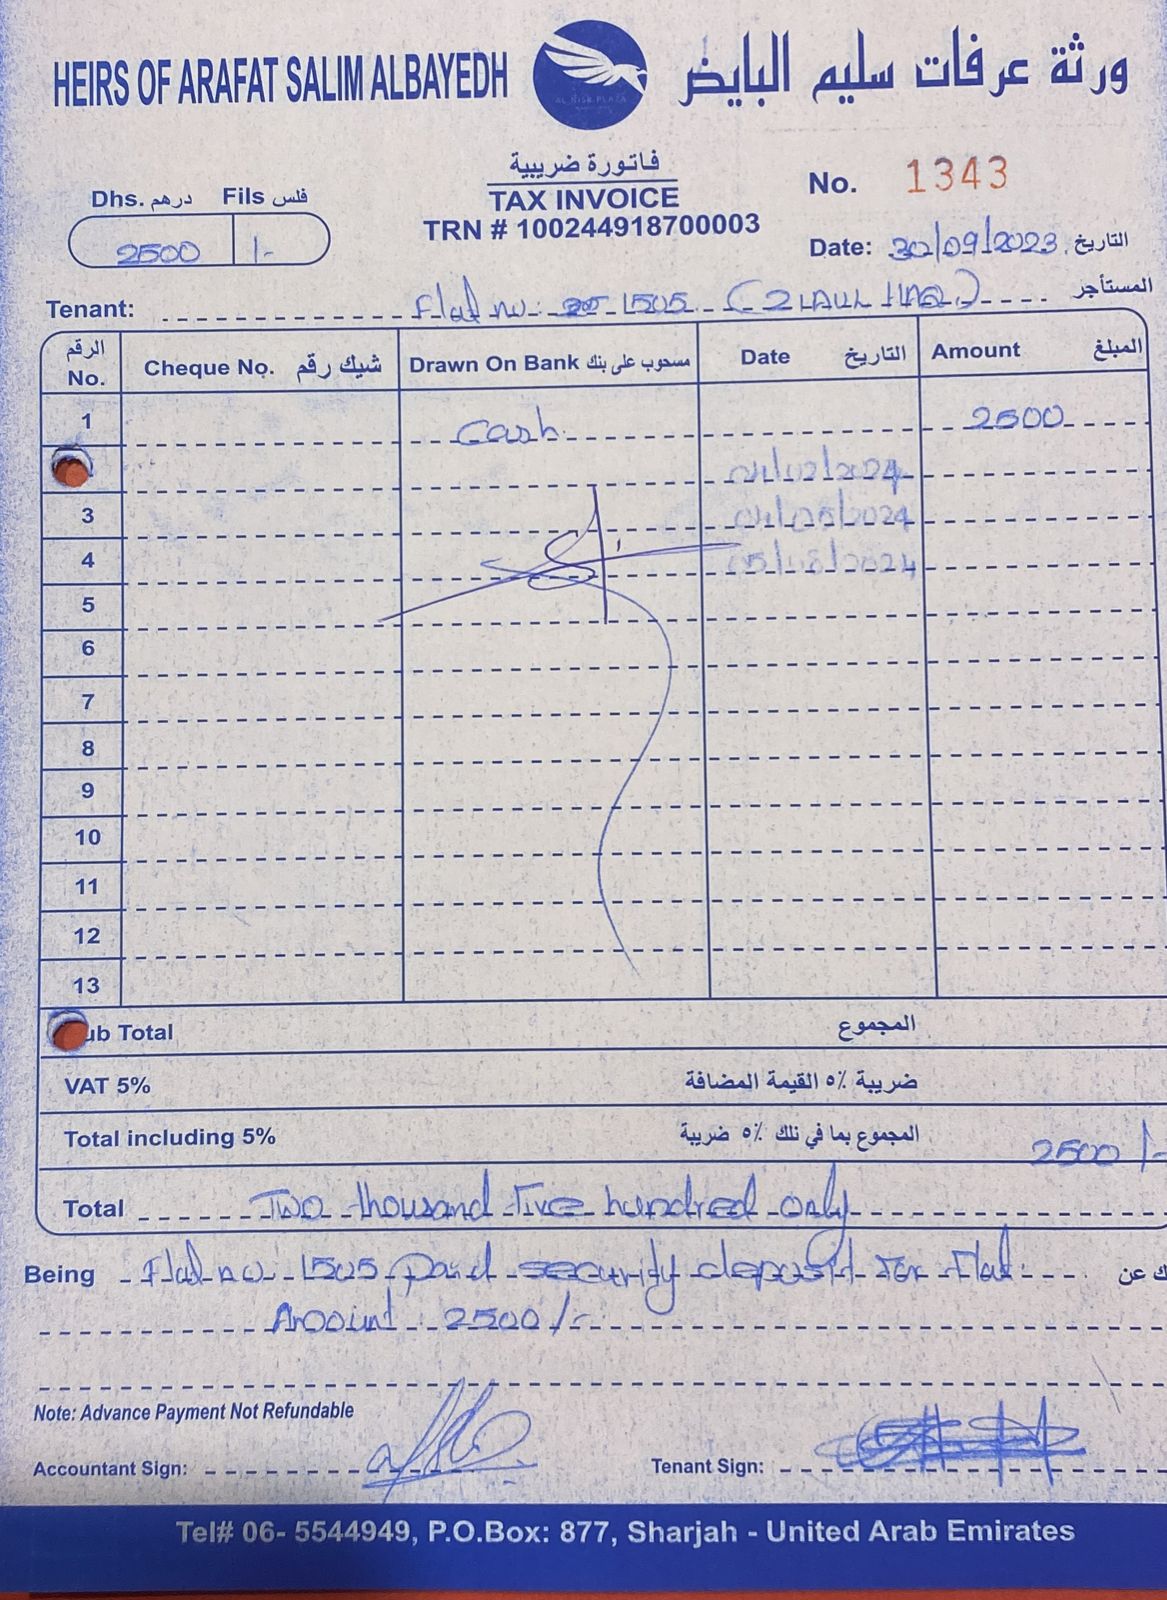 HEIRS OF ARAFAT SALIM ALBAYEDH
ورثة عرفات سليم البايض
AL NISR PLAZA
فاتورة ضريبية
TAX INVOICE
TRN # 100244918700003
No. 1343
Dhs. درهم Fils فلس
2500 /-
Date: 30/09/2023 التاريخ
Tenant: Flat no. 1505 (ZIAUL HAQ) المستأجر
الرقم No. Cheque No. شيك رقم Drawn On Bank مسحوب على بنك Date التاريخ Amount المبلغ
1 Cash 2500
/02/2024
3 /05/2024
4 05/08/2024
5
6
7
8
9
10
11
12
13
ub Total المجموع
VAT 5% ضريبة ٥٪ القيمة المضافة
Total including 5% المجموع بما في تلك ٥٪ ضريبة 2500/-
Total Two thousand five hundred only
Being Flat no 1505 paid security deposit for Flat. ك عن
Amount 2500/-
Note: Advance Payment Not Refundable
Accountant Sign: Tenant Sign:
Tel# 06- 5544949, P.O.Box: 877, Sharjah - United Arab Emirates